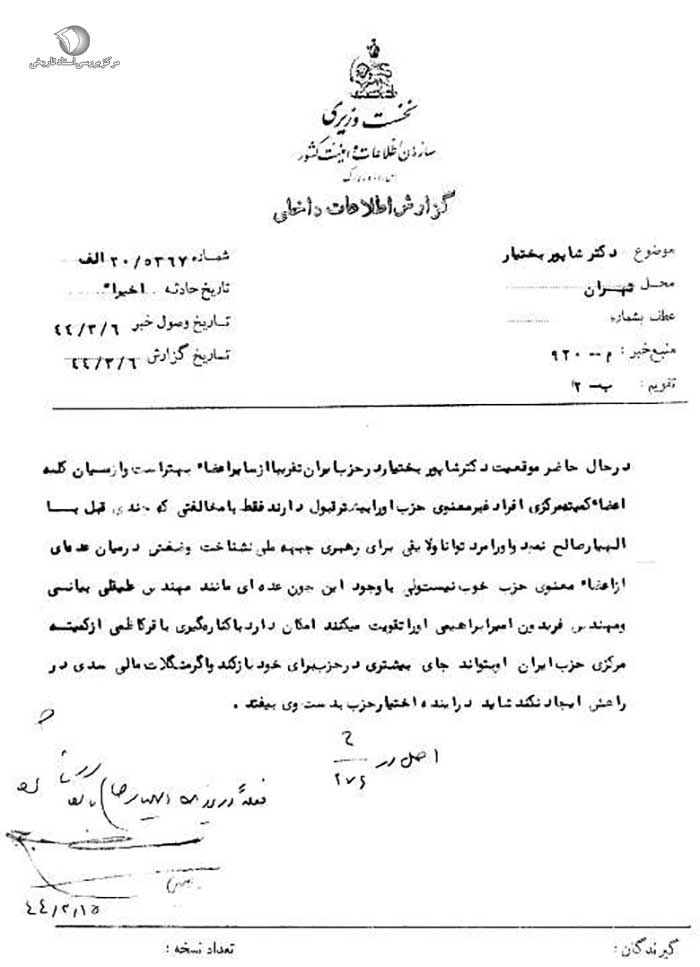 مرکز بررسی اسناد تاریخی
نخست وزیری
سازمان اطلاعات و امنیت کشور
س.ا.و.ا.ک
گزارش اطلاعات داخلی
موضوع دکتر شاپور بختیار
شماره ۲۰/۵۳۶۷ الف
محل تهران
تاریخ حادثه اخیراً
عطف بشماره
تاریخ وصول خبر ۴۴/۳/۶
منبع خبر : م -- ۹۲۰
تاریخ گزارش ۴۴/۳/۶
تقویم : ب -- ۲
در حال حاضر موقعیت دکتر شاپور بختیار در حزب ایران تقریبا از سایر اعضاء بهتر است و از میان کلیه
اعضاء کمیته مرکزی افراد غیر معنوی حزب او را بیشتر قبول دارند فقط با مخالفتی که چندی قبل بـــا
الهیار صالح نمود و او را مرد توانا و لایقی برای رهبری جبهه ملی نشناخت وضعش در میان عده‌ای
از اعضاء معنوی حزب خوب نیست ولی با وجود این چون عده ای مانند مهندس خلیقی بیانسی
و مهندس فریدون امیر ابراهیمی او را تقویت میکنند امکان دارد با کناره‌گیری باقر کاظمی از کمیتـــه
مرکزی حزب ایران او بتواند جای بیشتری در حزب برای خود باز کند و اگر مشکلات مالی سدی در
راهش ایجاد نکند شاید در آینده اختیار حزب بدست وی بیفتد .
اصل در ۲۷۶
فعلاً در پرونده الهیار صالح
۴۴/۳/۱۵
گیرندگان :
تعداد نسخه :